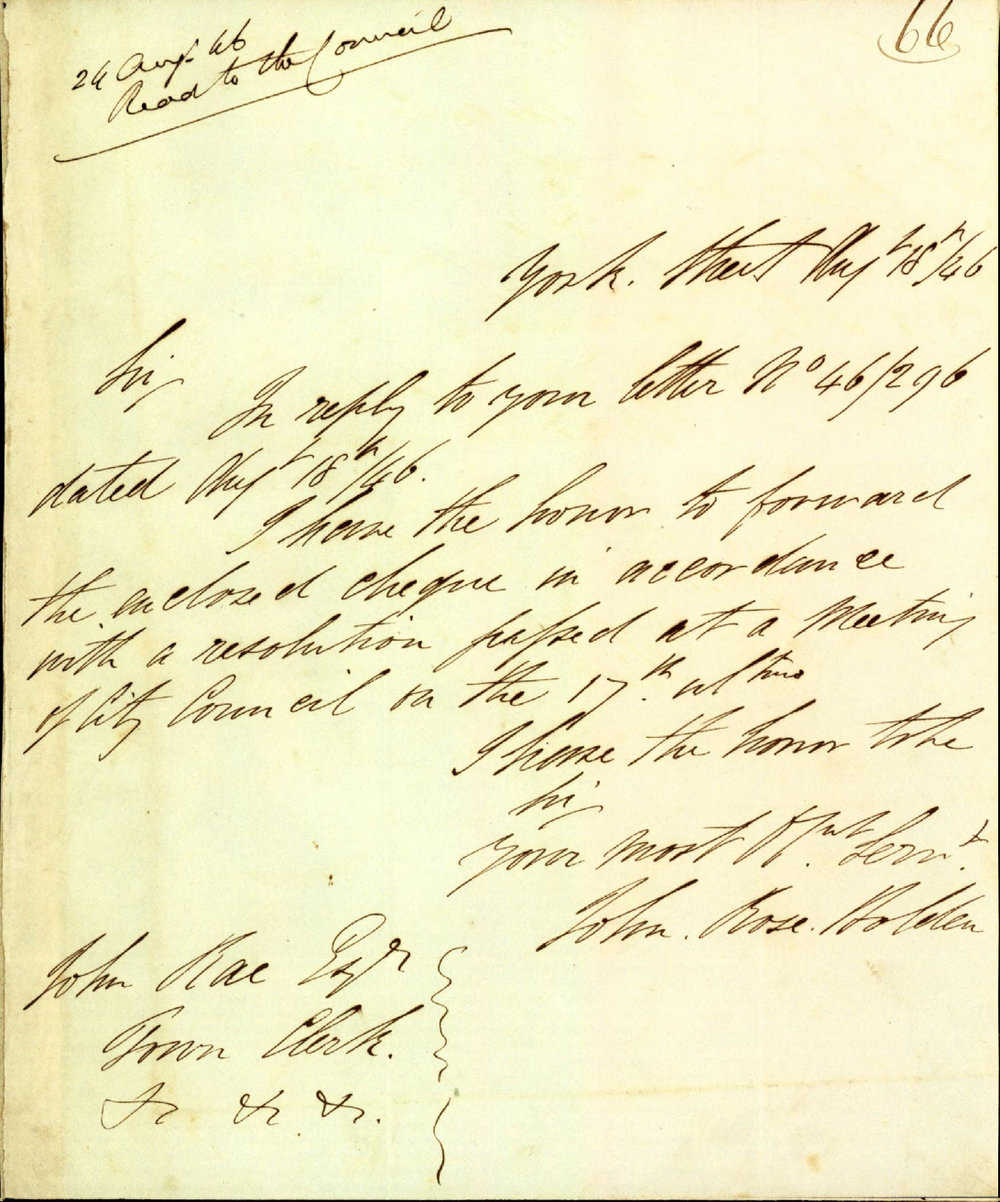 24 Augt 46
Read to the Council
66
York. Street Augt 18th/46
Sir
In reply to your letter No 46/296
dated Augt 18th/46.
I have the honor to forward
the enclosed cheque in accordance
with a resolution passed at a Meeting
of City Council on the 17th ultimo
I have the honor to be
Sir
your most Obt Servt
John. Rose. Holden
John Rae Esqr
Town Clerk.
&c &c &c.